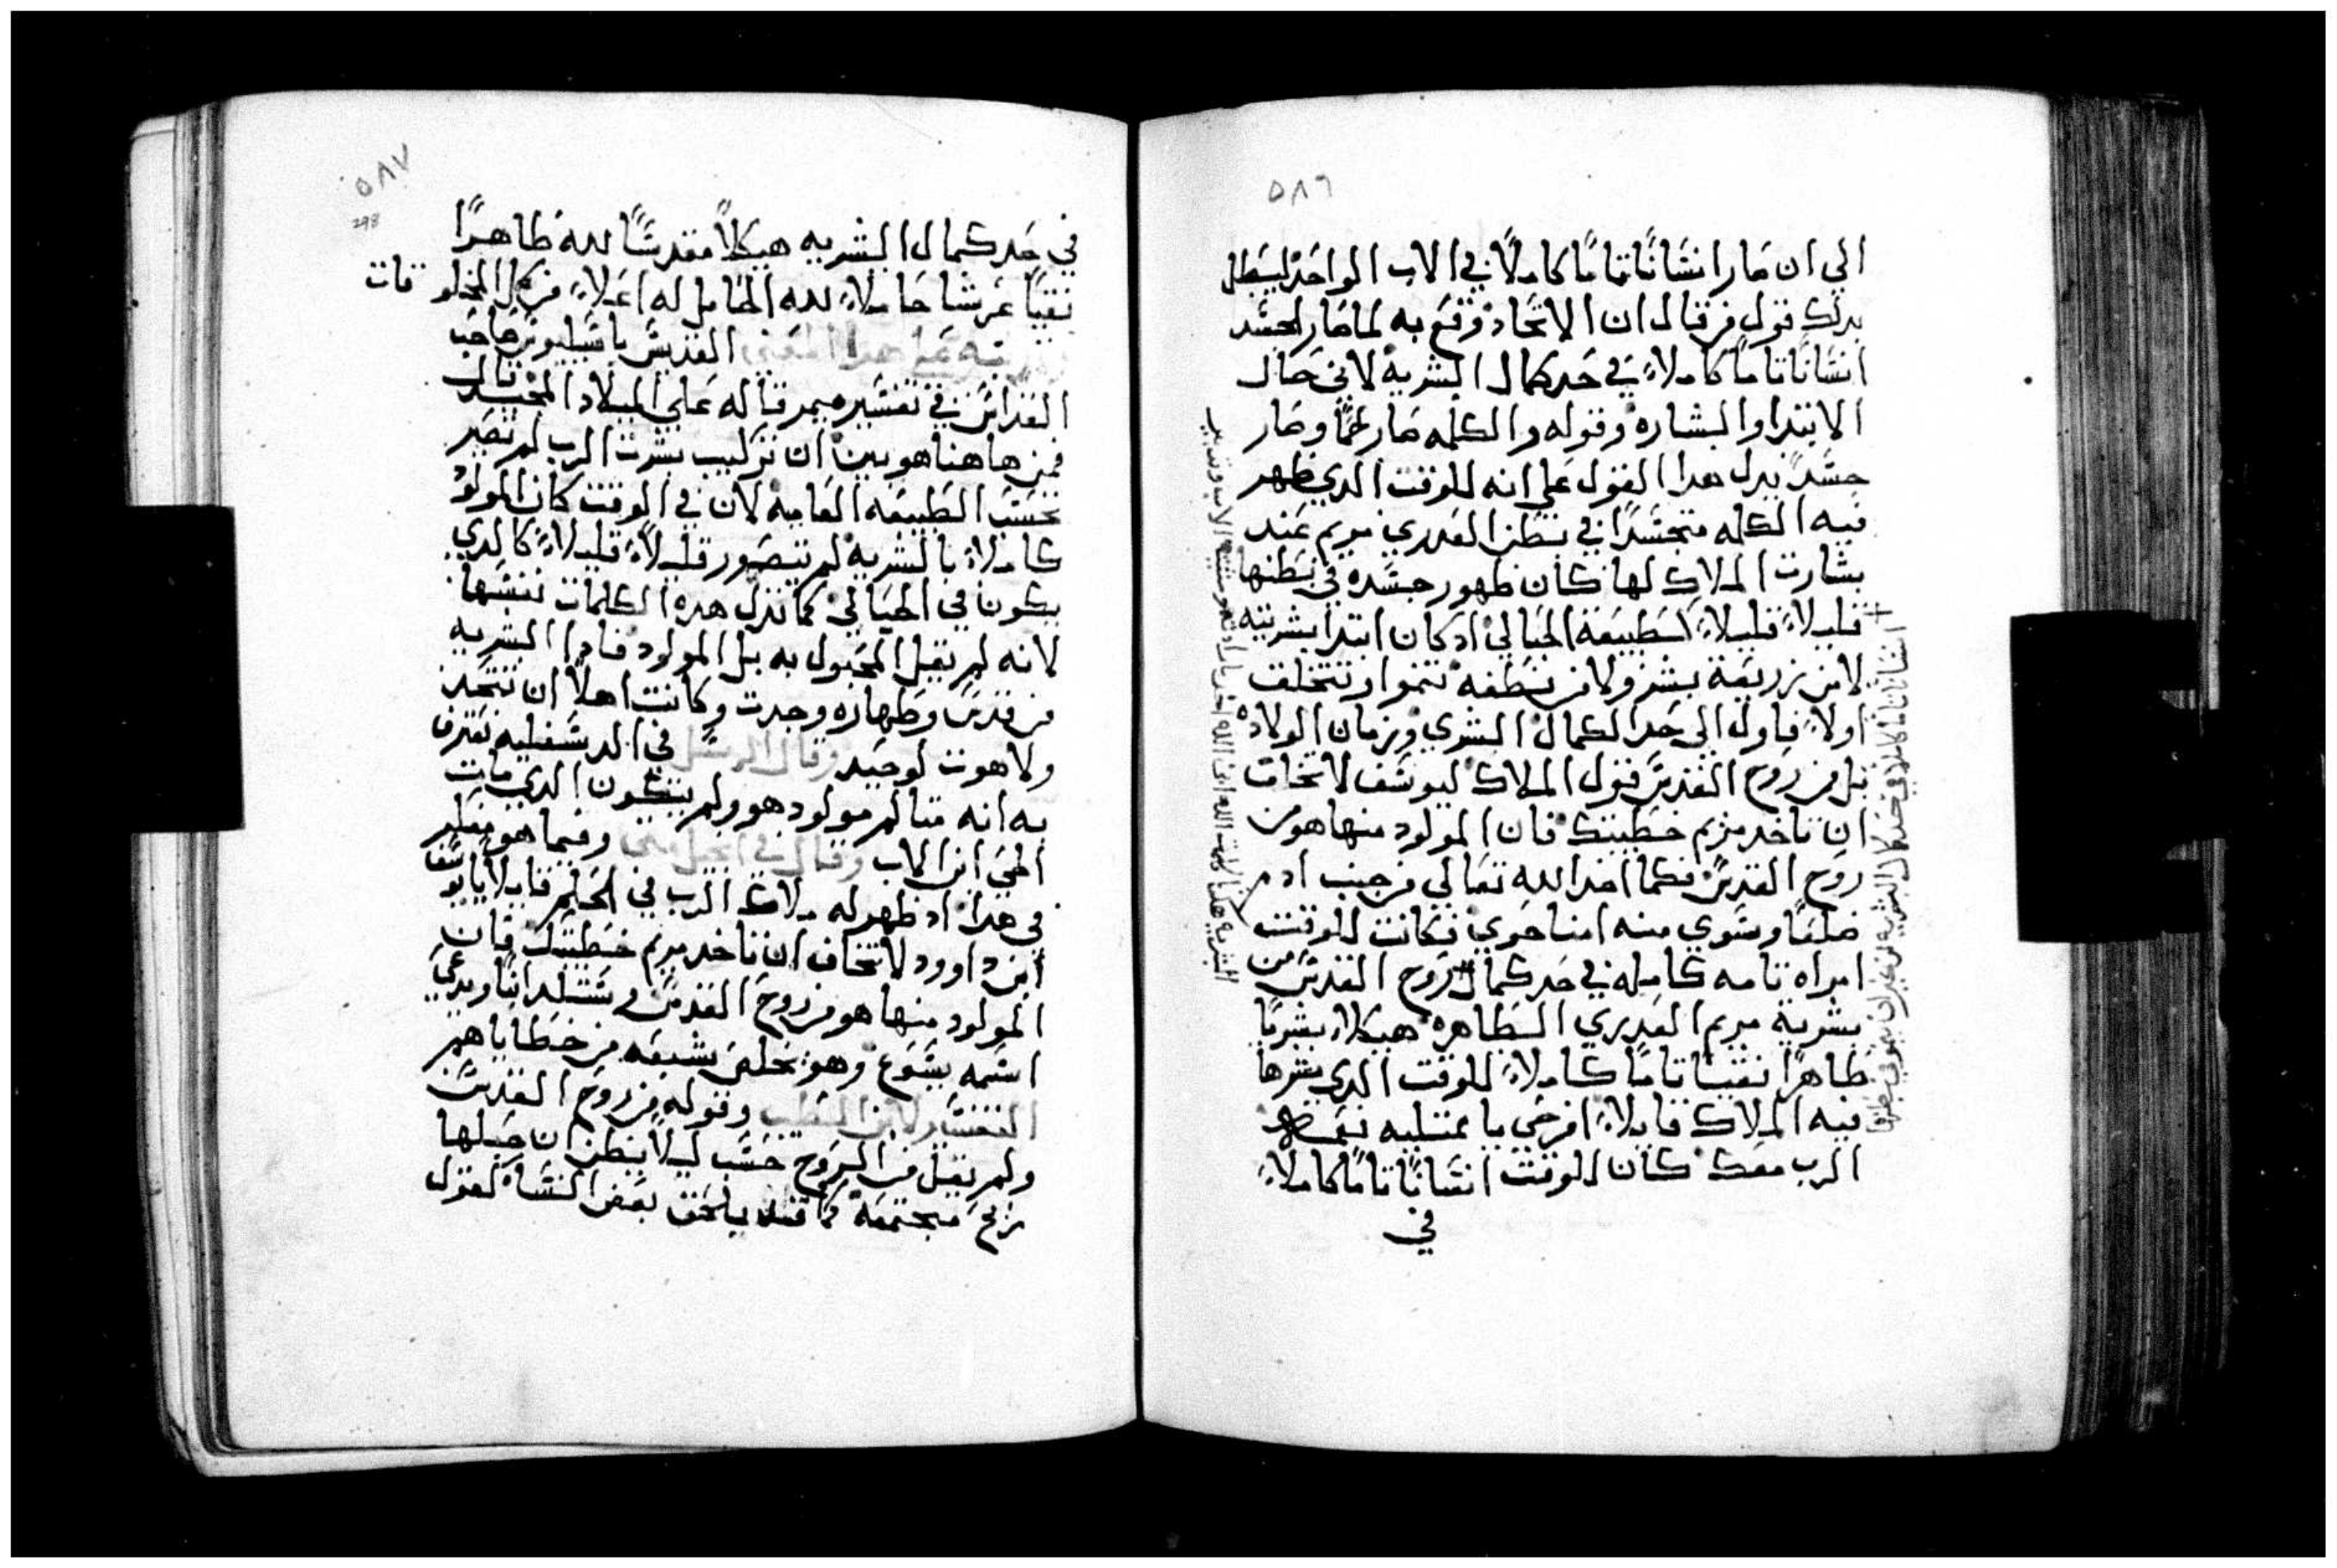 ٥٨٦
الي ان صار انسانًا تامًا كاملًا في الاب الواحد ليبطل
بدلك قول من قال ان الاتحاد وقع به لما صار الجسد
انسانًا تامًا كاملاً في حد كمال البشريه لا في حال
الابتدا والبشاره وقوله والكلمه صار لحمًا وصار
جسدً يدل هدا القول علي انه للوقت الدي ظهر
فيه الكلمه متجسدًا في بطن العدري مريم عند
بشارت الملاك لها كان ظهور جسده في بطنها
قليلاً قليلاً كطبيعة الحبالي ادكان ابتدا بشريته
لا من زريعة بشر ولا من نطفه تنموا وتتخلق
اولاً فاول الي حد الكمال البشري وزمان الولاده
بل من روح القدس فقول الملاك ليوسف لا تخاف
ان تاخد مريم خطيبتك فان المولود منها هو من
روح القدس فكما اخد الله تعالي من جنب ادم
ضلعًا وسوي منه امنا حوي فكانت للوقت
امراه تامه كامله في حد كمال روح القدس من
بشرية مريم العديري الطاهره هيكلاً بشريًا
طاهرًا نقيًا تامًا كاملاً للوقت الدي بشرها
فيه الملاك قايلاً افرحي يا ممتليه نعمه
الرب معك كان للوقت انسانًا تامًا كاملاً
في
انسانًا تامًا كاملًا في حد كمال البشريه من غير ان ينمو في بطن
٥٨٧
298
في حد كمال البشريه هيكلاً مقدسًا لله طاهرًا
نقيًا عرشا حاملاً لله الحامل له اعلاً من كل المخلوقات
القديس باسيليوس صاحب
القداس في تفسيره ميمر قاله علي الميلاد المجيد قال
فمن هاهنا هو بين ان تركيب بشرت الرب لم تصير
بحسب الطبيعه العاميه لان في الوقت كان المولود
كاملاً بالبشريه لم يتصور قليلاً قليلاً كالدي
يكون في الحبالي كما تدل هده الكلمات نفسها
لانه لم يقيل المحبول به بل المولود فادا البشريه
من قدس وطهاره وجدت وكانت اهلاً ان تتحد
ولاهوت لوحيد وقال الرسل في الدسقليه نعترف
به انه متالم مولود هو ولم يتكون الدي مات
الحي ابن الاب وقال في انجيل متي وفيما هو مفكر
في هدا اد ظهر له ملاك الرب في الحلم قايلاً يا يوسف
ابن داوود لا تخاف ان تاخد مريم خطيبتك فان
المولود منها هو من روح القدس وستلد ابنًا ويدعي
اسمه يسوع وهو يخلص شعبه من خطاياهم
التفسير لابن الطيب وقوله من روح القدس
ولم يقيل من الروح حسب ليلاً يظن ان حبلها
ريح مجتمعة كما قد يلحق بعض النسا لقول